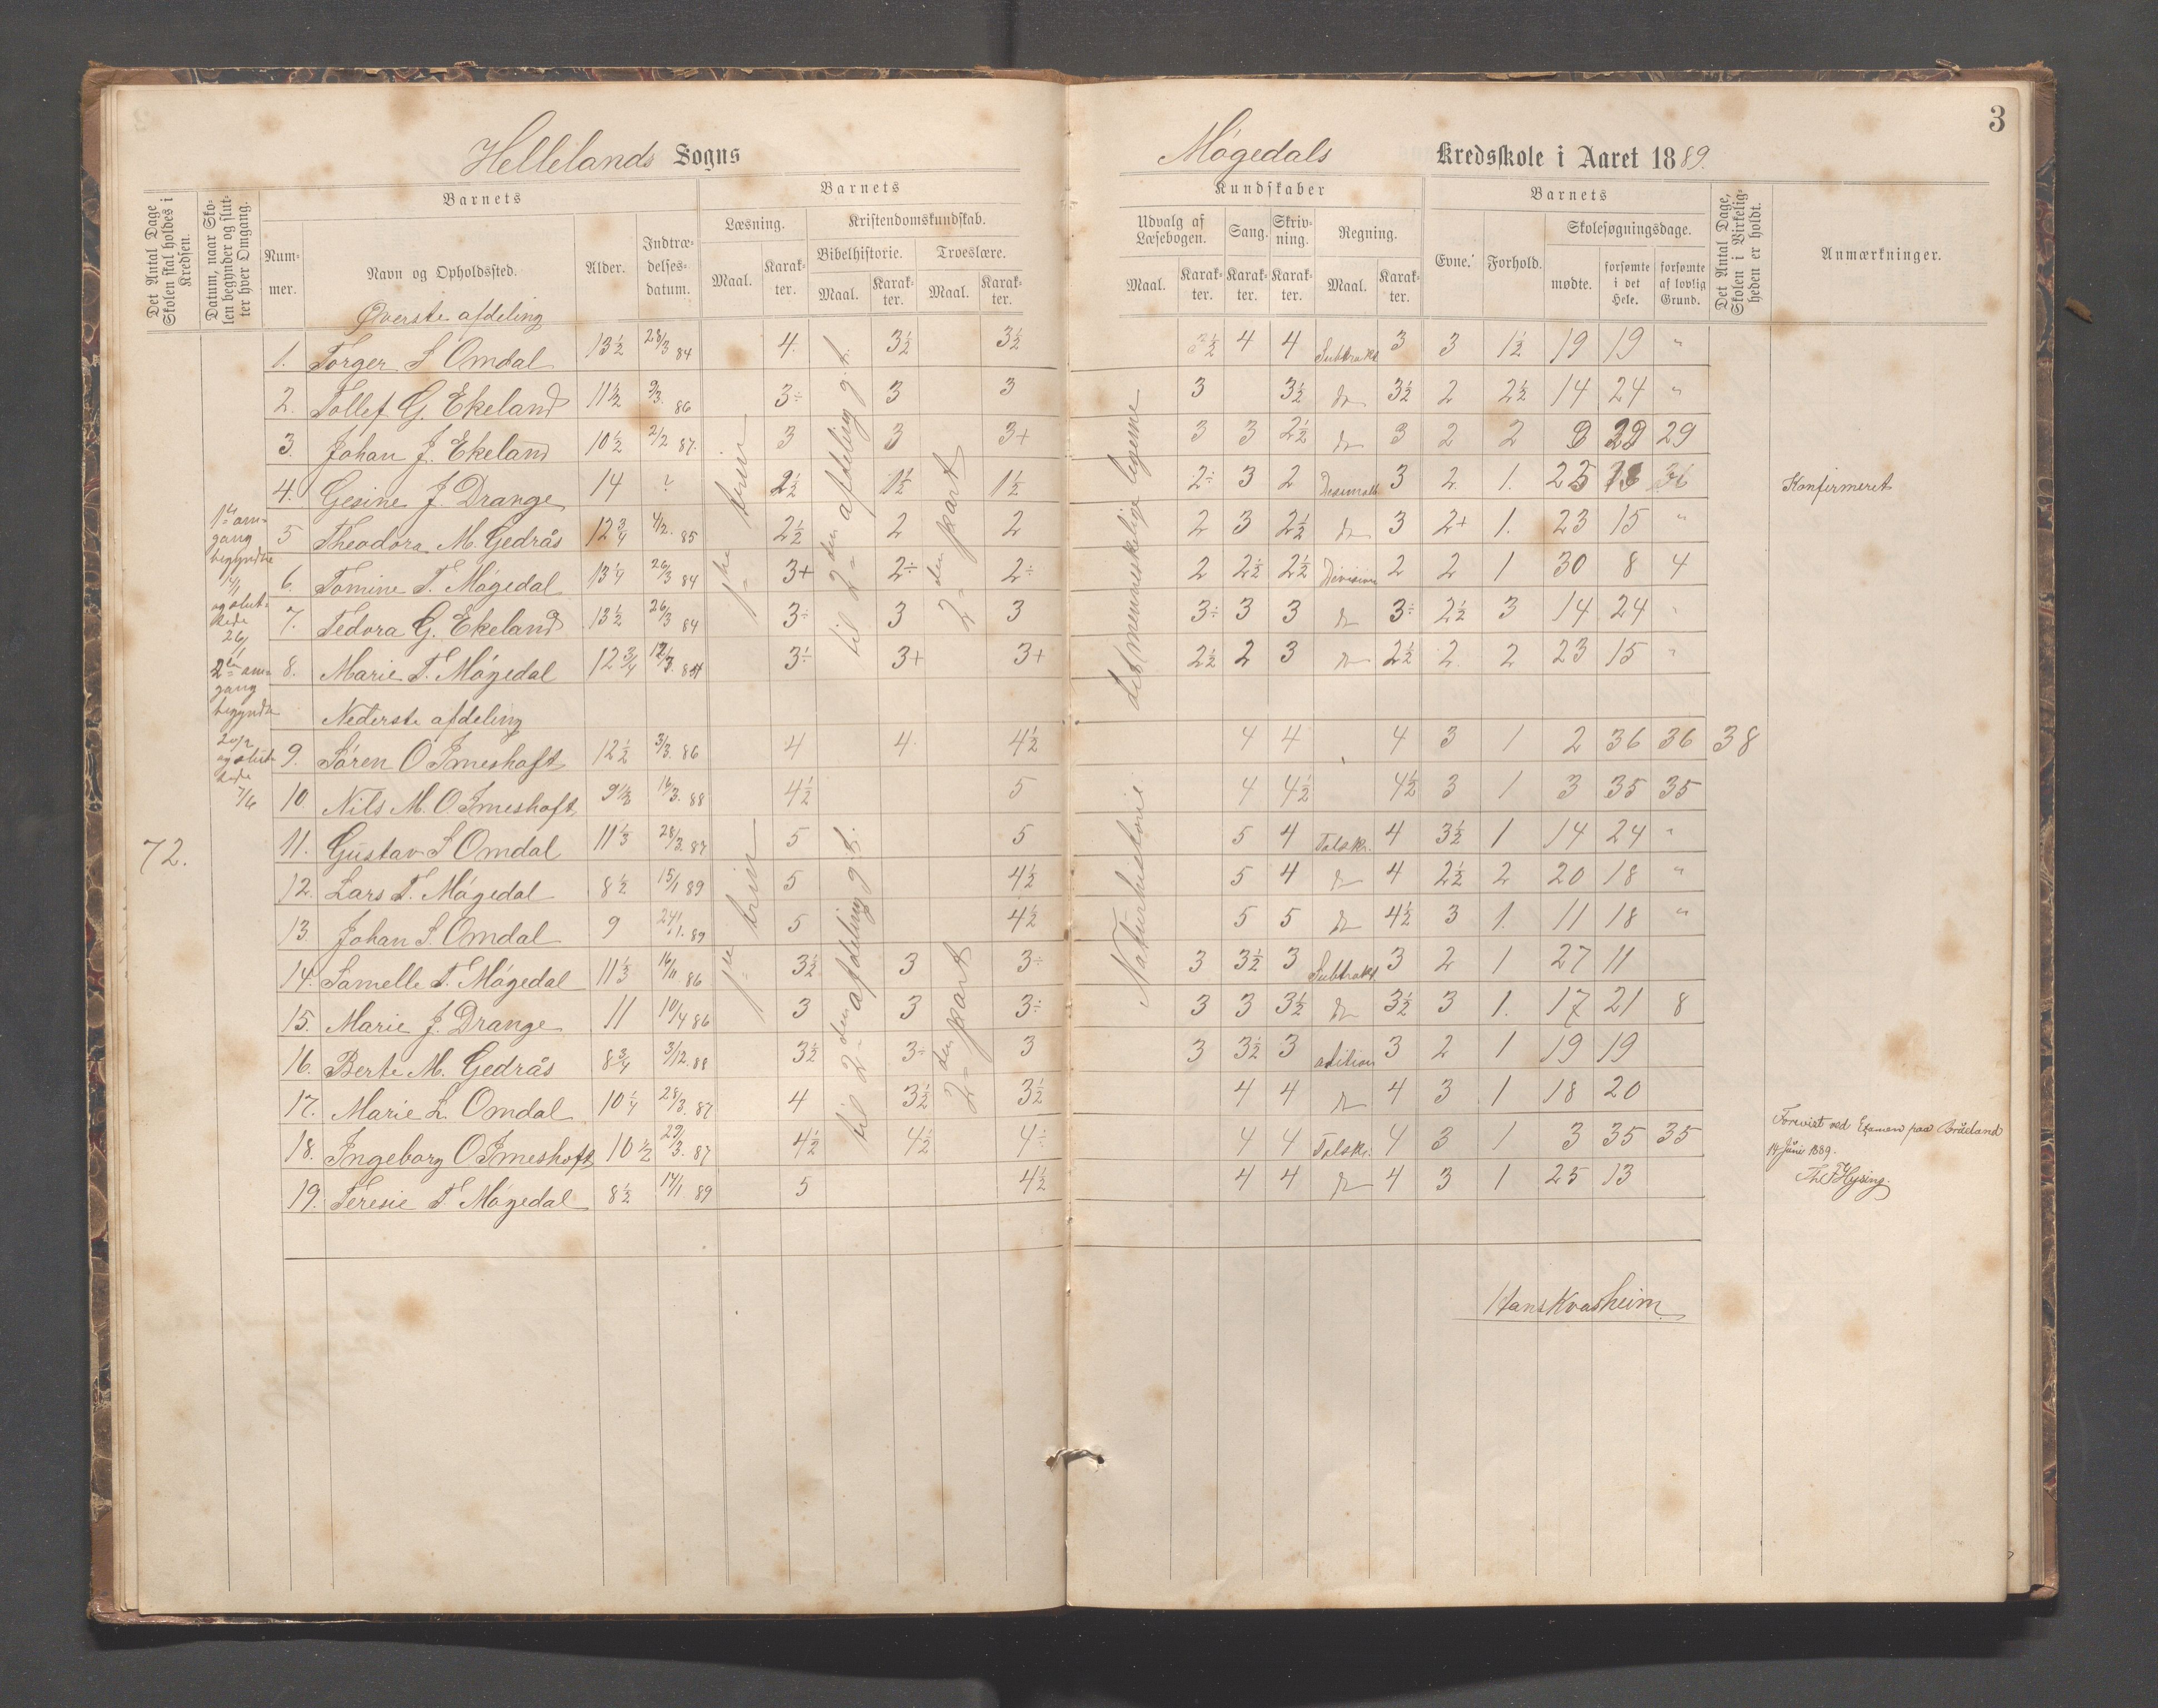 3
Hellelands Sogns
Møgedals Kredsskole i Aaret 1889.
Det Antal Dage Skolen skal holdes i Kredsen.
Datum, naar Skolen begynder og slutter hver Omgang.
Barnets
Nummer.
Navn og Opholdssted.
Alder.
Indtrædelsesdatum.
Barnets
Læsning.
Maal.
Karakter.
Kristendomskundskab.
Bibelhistorie.
Maal.
Karakter.
Troeslære.
Maal.
Karakter.
Kundskaber
Udvalg af Læsebogen.
Maal.
Karakter.
Sang.
Karakter.
Skrivning.
Karakter.
Regning.
Maal.
Karakter.
Barnets
Evne.
Forhold.
Skolesøgningsdage.
mødte.
forsømte i det Hele.
forsømte af lovlig Grund.
Det Antal Dage, Skolen i Virkeligheden er holdt.
Anmærkninger.
Øverste afdeling
1. Torger S Omdal 13½ 28/3 84 4. 3½ 3½ 3½ 4 4 Subtrakt 3 3 1½ 19 19 "
2. Tollef G. Ekeland 11½ 9/3. 86 3÷ 3 3 3 3½ do 3½ 2 2½ 14 24 "
3. Johan J. Ekeland 10½ 2/2 87. 3 3 3+ 3 3 2½ do 3 2 2 9 29 29
4. Gesine J. Drange 14 ? 2½ 1½ 1½ 2÷ 3 2 3 2. 1. 25 Konfirmeret
5 Theodora M. Gedrås 12¾ 4/2. 85 2½ 2 2 2 3 2½ do 3 2+ 1. 23 15 "
6. Tomine T. Møgedal 13¼ 26/3 84 3+ 2÷ 2÷ 2 2½ 2½ Division 2 2 1 30 8 4
7. Tedora G. Ekeland 13½ 26/3 84 3÷ 3 3 3÷ 3 3 do 3÷ 2½ 3 14 24 "
8. Marie T. Møgedal 12¾ 12/3. 84 3÷ 3+ 3+ 2½ 2 3 do 2½ 2 2 23 15 "
Nederste afdeling
9. Søren O Imeshaft 12½ 3/3. 86 4 4. 4½ 4 4 4 3 1 2 36 36 38
10. Nils M. O Imeshaft 9½ 16/3. 88 4½ 5 4 4½ 4½ 3 1 3 35 35
11. Gustav S Omdal 11⅓ 28/3. 87 5 5 5 4 Talskr. 4 3½ 1 14 24 "
12. Lars T. Møgedal 8½ 15/1 89 5 4½ 5 4 do 4 2½ 2 20 18 "
13. Johan S. Omdal 9 24/1. 89 5 4½ 5 5 do 4½ 3 1. 11 18 "
14. Samelle T. Møgedal 11⅓ 16/11. 86 3½ 3 3÷ 3 3½ 3 Subtrakt. 3 2 1 27 11
15. Marie J. Drange 11 10/4 86 3 3 3÷ 3 3 3½ do 3½ 3 1. 17 21 8
16. Berte M. Gedrås 8¾ 3/12. 88 3½ 3÷ 3 3 3½ 3 adition 3 2 1 19 19
17. Marie L. Omdal 10¼ 28/3. 87 4 3½ 3½ 4 4 do 4 3 1 18 20
18. Ingeborg O Imeshaft 10½ 29/3. 87 4½ 4½ 4÷ 4 4 Talskr. 4 3 1 3 35 35
19. Teresie T Møgedal 8½ 14/1 89 5 4½ 4 4 do 4 3 1 25 13
1ste omgang
begyndte
14/1
og sluttede
26/1
2den omgang
begyndte
og sluttede
7/6
72.
1ste trin
til 2den afdeling g. t.
2den part
det menneskelige legeme
1ste trin
til 2den afdeling g. t.
2den part
Naturhistorie
Forevist ved Examen paa Bråeland
14 Juni 1889.
Th. Hysing.
Hans Kvasheim